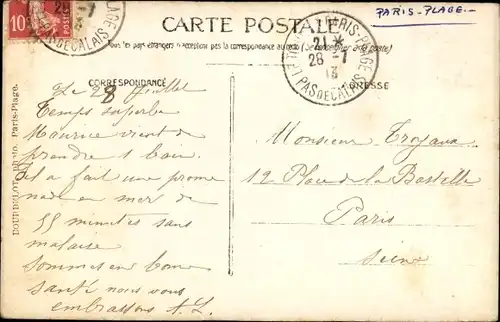 PARIS-PLAGE.
CARTE POSTALE
Tous les pays étrangers n'acceptent pas la correspondance au recto (Se renseigner à la poste)
CORRESPONDANCE
ADRESSE
PARIS-PLAGE
21 *
28 -7
13
PAS DE CALAIS
10
28 -7
PLAGE
PAS DE CALAIS
Paris-Plage.
Le 28 Juillet
Temps superbe
Maurice vient de
prendre 1 bain.
Il a fait une prome
nade en mer de
55 minutes sans
malaise
Sommes en bonne
santé nous vous
embrassons A. L.
Monsieur
12 Place de la Bastille
Paris
Seine